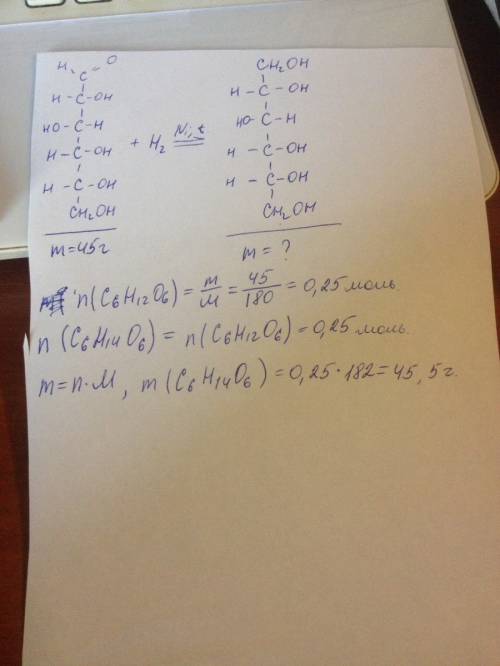 H O CH₂OH
C H - C - OH
H - C - OH HO - C - H
HO - C - H + H₂ Ni, t H - C - OH
H - C - OH H - C - OH
H - C - OH CH₂OH
CH₂OH
m = 45г m = ?
n (C₆H₁₂O₆) = m/M = 45/180 = 0,25 моль.
n (C₆H₁₄O₆) = n (C₆H₁₂O₆) = 0,25 моль.
m = n · M, m (C₆H₁₄O₆) = 0,25 · 182 = 45,5г.